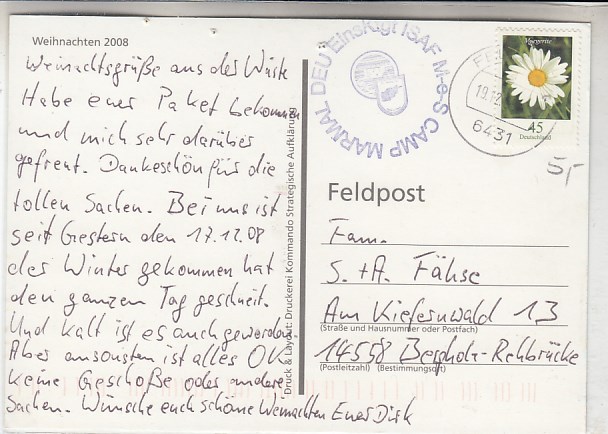 Weihnachten 2008
Weinachtsgrüße aus der Wüste
Habe euer Paket bekommen
und mich sehr darüber
gefreut. Dankeschön für die
tollen Sachen. Bei uns ist
seit Gestern den 17.12.08
der Winter gekommen hat
den ganzen Tag geschneit.
Und kalt ist es auch geworden.
Aber ansonsten ist alles OK
keine Geschoße oder andere
Sachen. Wünsche euch schöne Weinachten Euer Dirk
Druck & Layout: Druckerei Kommando Strategische Aufklärung
DEU EinsK.gt ISAF M-e-S CAMP MARMAL
6431
Margerite
45
Deutschland
5,-
Feldpost
Fam.
S. + A. Fähse
Am Kiefernwald 13
(Straße und Hausnummer oder Postfach)
14558 Bergholz-Rehbrücke
(Postleitzahl) (Bestimmungsort)